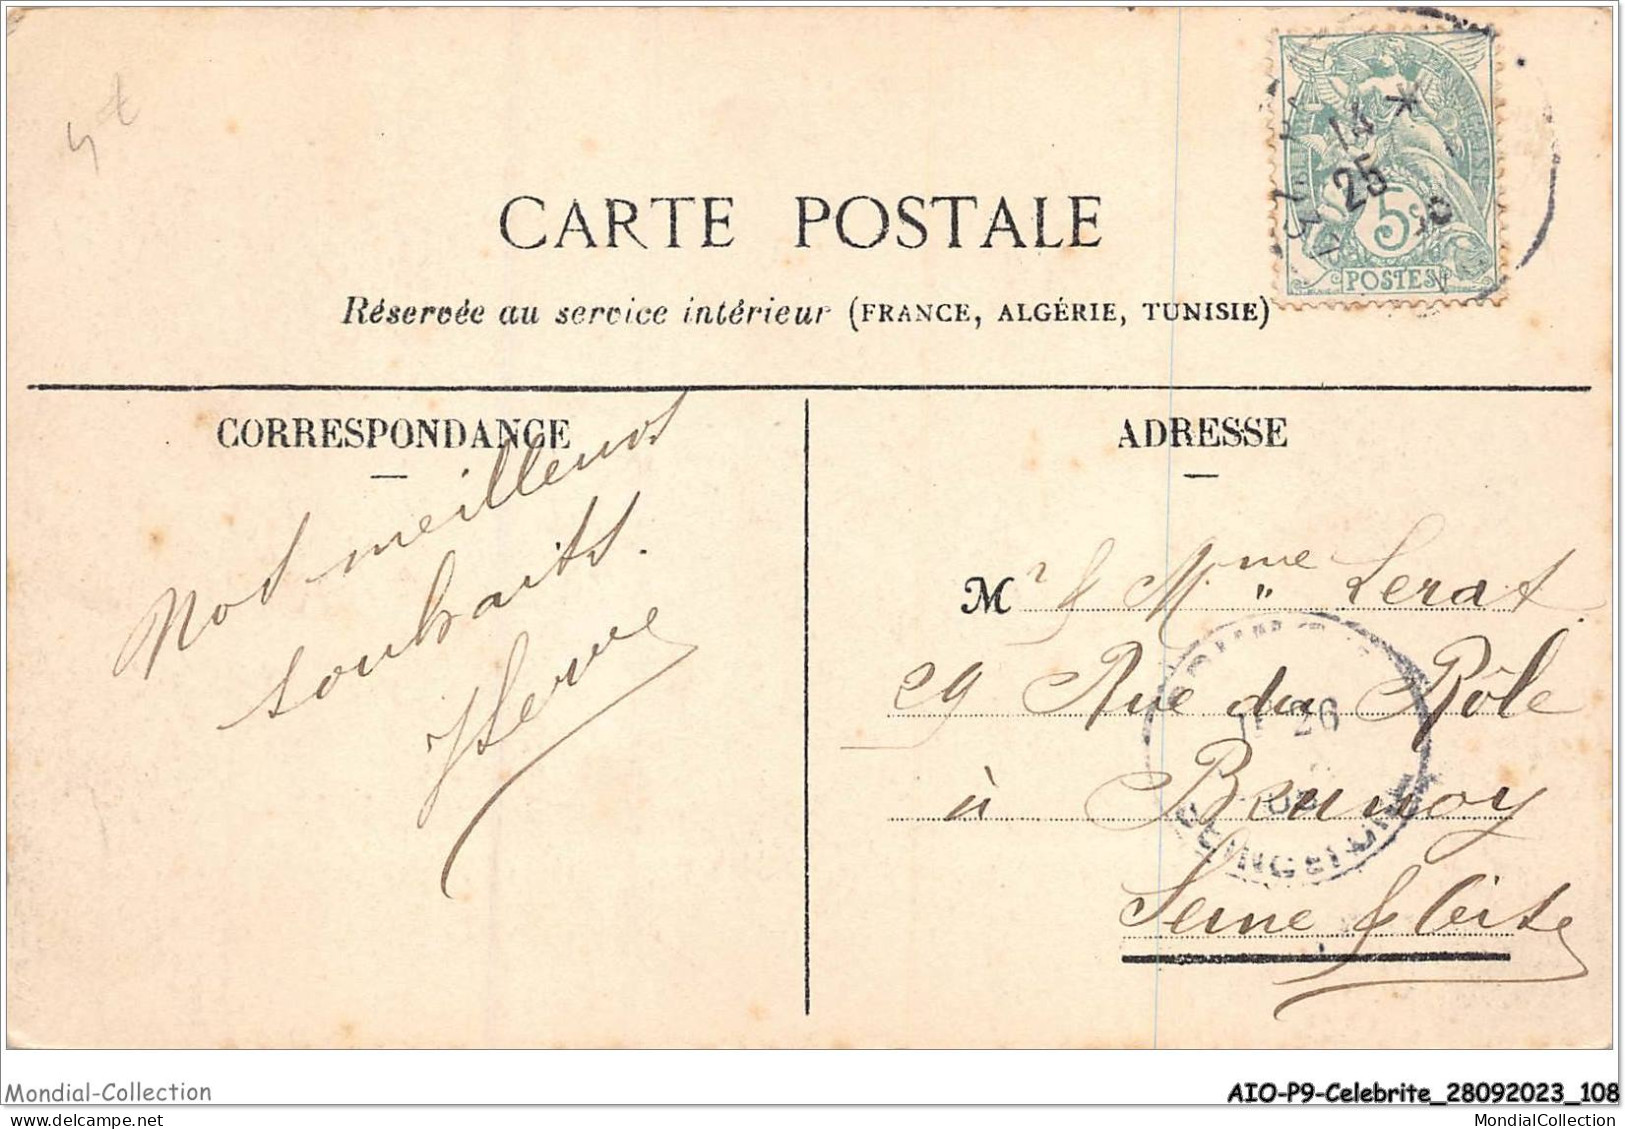 4 €
CARTE POSTALE
Réservée au service intérieur (FRANCE, ALGÉRIE, TUNISIE)
14 *
25
5c
POSTES
CORRESPONDANCE
Nos meilleurs
souhaits.
Herve
ADRESSE
Mr & Mme Lerat
29 Rue du Rôle
à Brunoy
Seine & Oise
26
Mondial-Collection
AIO-P9-Celebrite_28092023_108
MondialCollection
MondialCollection